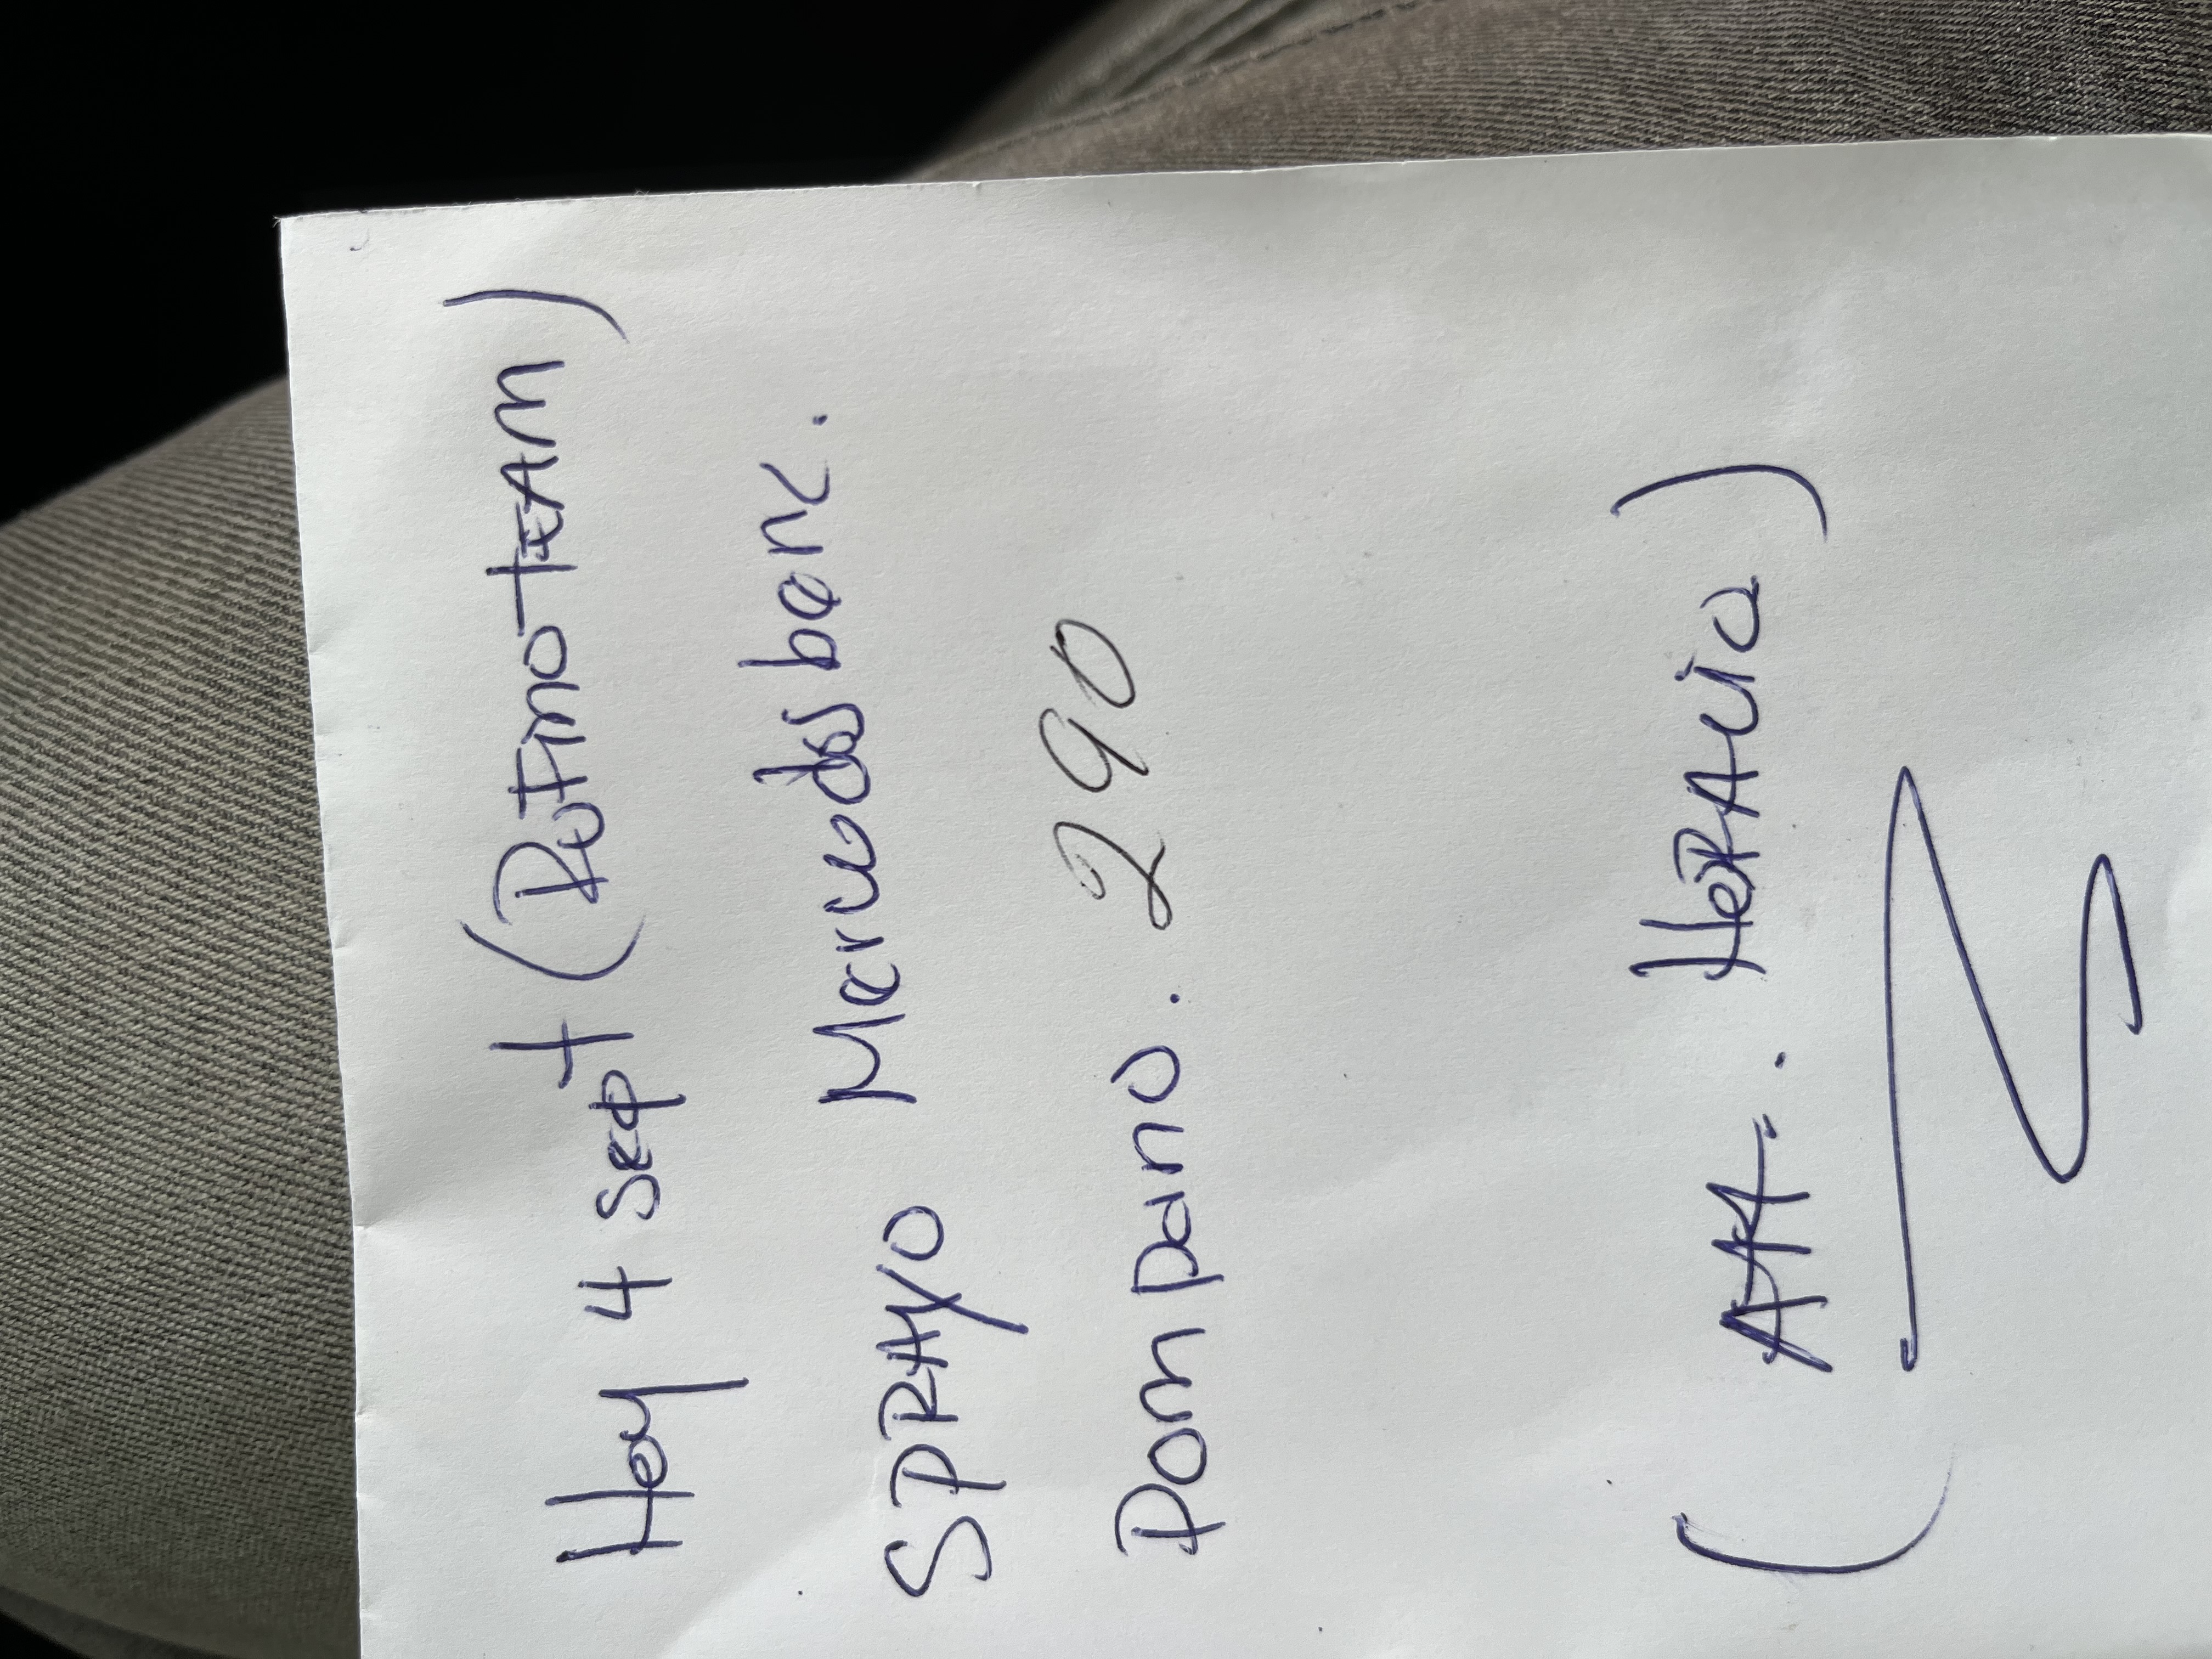 Hoy 4 sept (RUFINO TEAM)
SPRHYO Mercudss benc.
Pompano. 290
(ATT.. HORAcio)